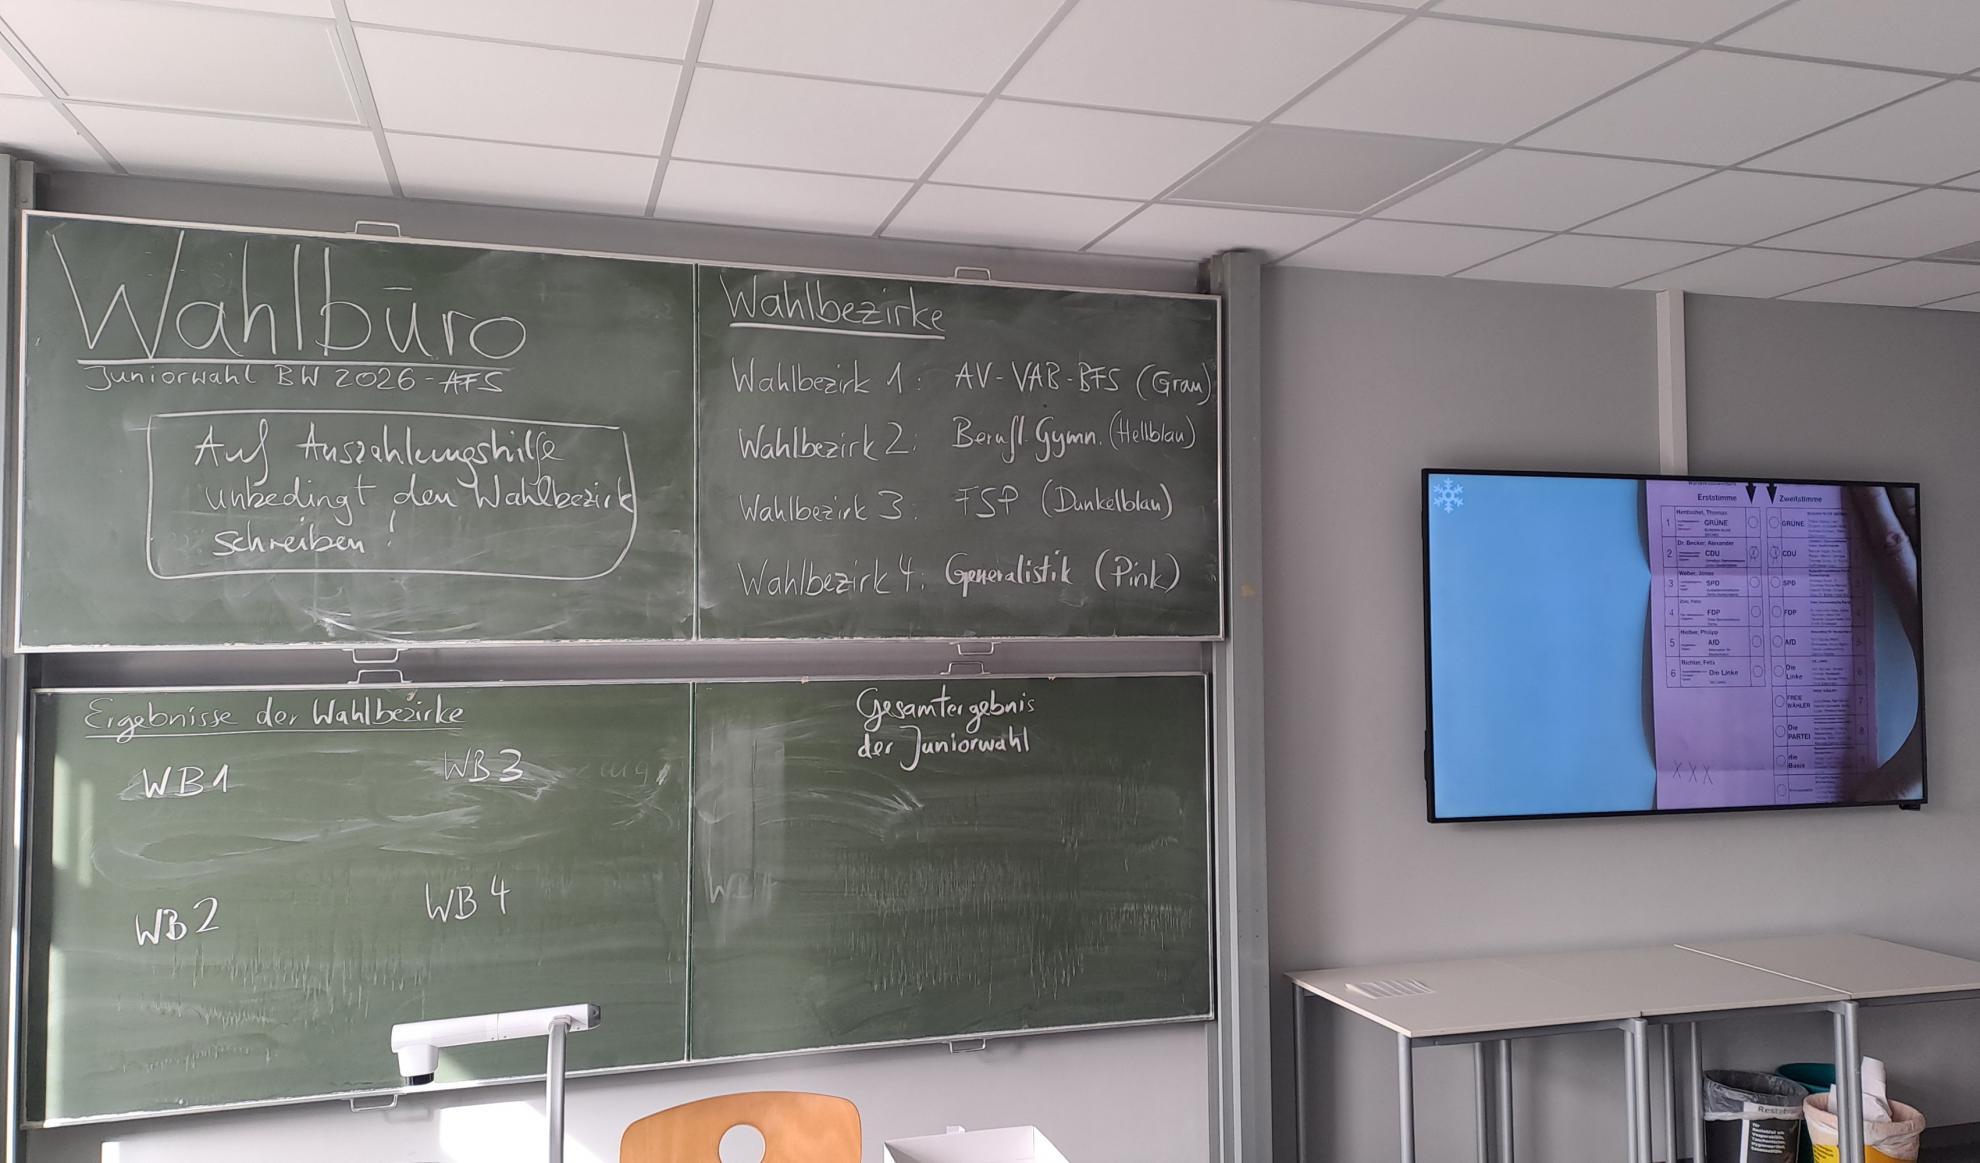 Wahlbüro
Juniorwahl BW 2026 - AFS
Auf Auszahlungshilfe
unbedingt den Wahlbezirk
schreiben!
Wahlbezirke
Wahlbezirk 1: AV-VAB-BFS (Grau)
Wahlbezirk 2: Berufl. Gymn. (Hellblau)
Wahlbezirk 3: FSP (Dunkelblau)
Wahlbezirk 4: Generalistik (Pink)
Ergebnisse der Wahlbezirke
WB1
WB3
WB2
WB4
Gesamtergebnis
der Juniorwahl
Erststimme
Zweitstimme
1 Hentschel, Thomas
GRÜNE
GRÜNE
2 Dr. Becker, Alexander
CDU
CDU
3 Weber, Jonas
SPD
SPD
4
FDP
FDP
5
AfD
AfD
6 Richter, Felix
Die Linke
Die Linke
FREIE WÄHLER
Die PARTEI
die Basis
XXX